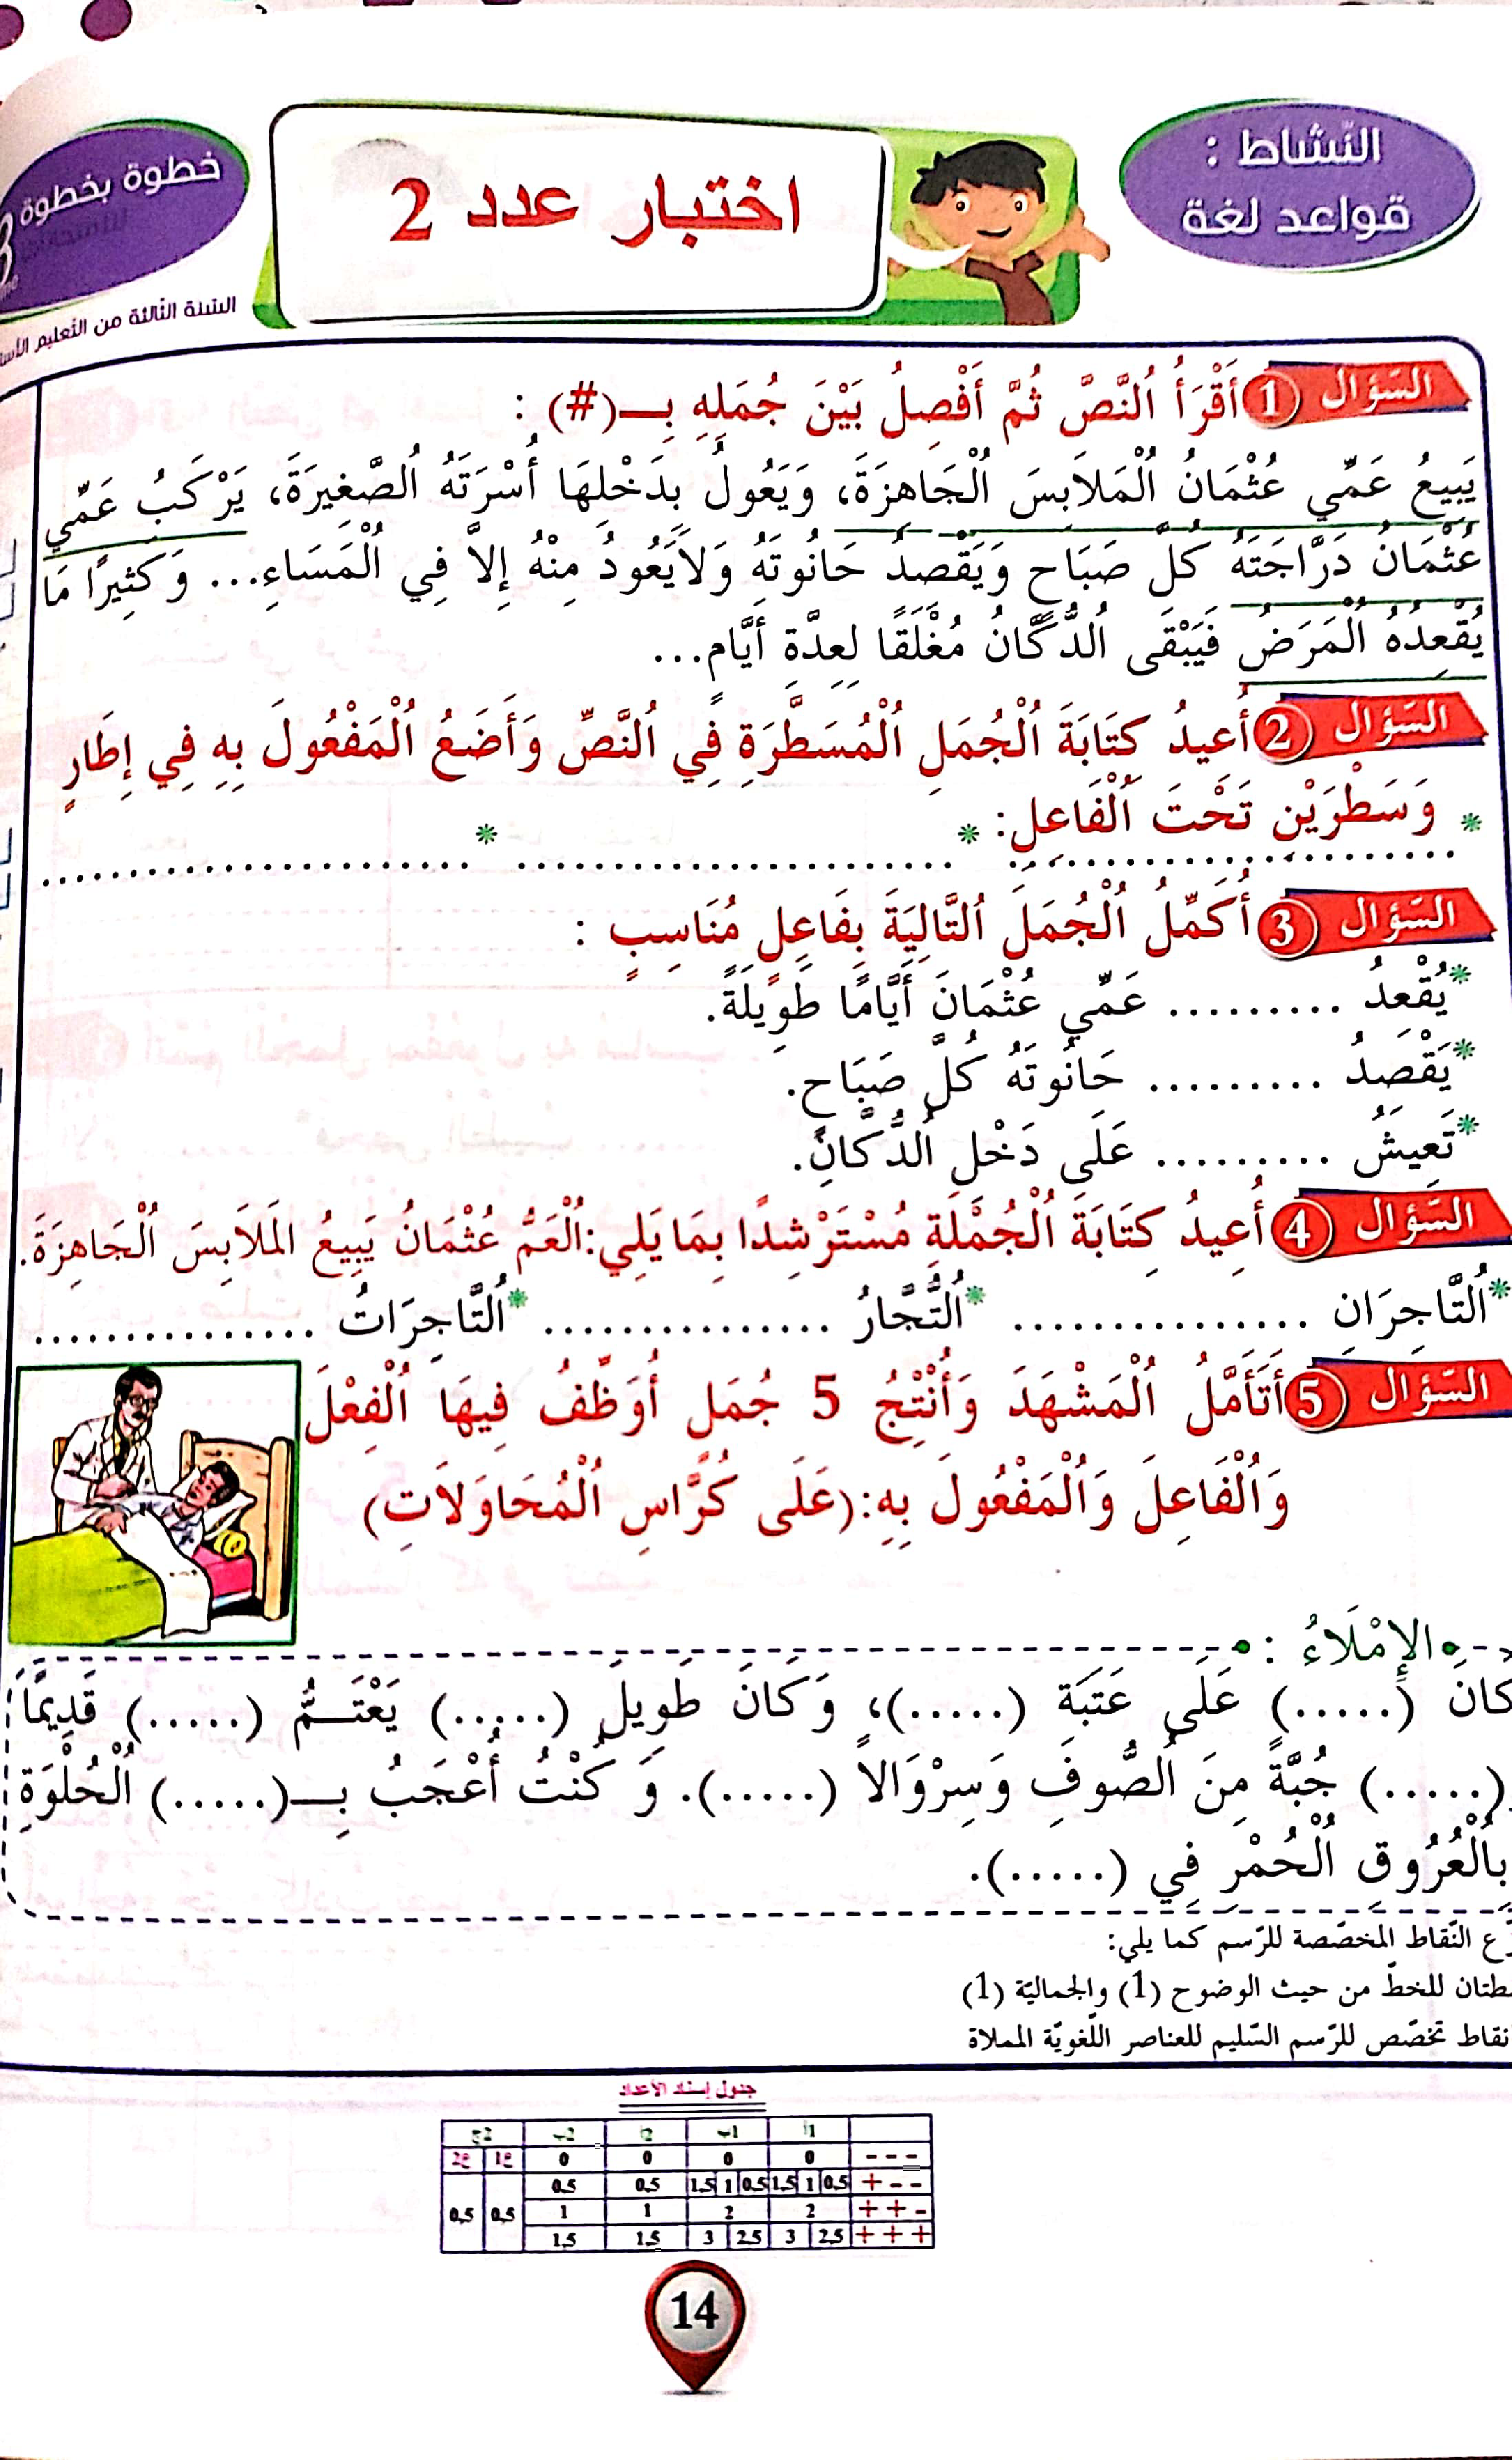 النّشاط :
قواعد لغة
اختبار عدد 2
خطوة بخطوة
السّنة الثّالثة من التّعليم
السّؤال 1 أَقْرَأُ ٱلنَّصَّ ثُمَّ أَفْصِلُ بَيْنَ جُمَلِهِ بِـــ(#) :
يَبِيعُ عَمِّي عُثْمَانُ ٱلْمَلاَبِسَ ٱلْجَاهِزَةَ، وَيَعُولُ بِدَخْلِهَا أُسْرَتَهُ ٱلصَّغِيرَةَ، يَرْكَبُ عَمِّي
عُثْمَانُ دَرَّاجَتَهُ كُلَّ صَبَاحٍ وَيَقْصِدُ حَانُوتَهُ وَلاَيَعُودُ مِنْهُ إِلاَّ فِي ٱلْمَسَاءِ... وَكَثِيرًا مَا
يُقْعِدُهُ ٱلْمَرَضُ فَيَبْقَى ٱلدُّكَّانُ مُغْلَقًا لِعِدَّةِ أَيَّامٍ...
السّؤال 2 أُعِيدُ كِتَابَةَ ٱلْجُمَلِ ٱلْمُسَطَّرَةِ فِي ٱلنَّصِّ وَأَضَعُ ٱلْمَفْعُولَ بِهِ فِي إِطَارٍ
وَسَطْرَيْنِ تَحْتَ ٱلْفَاعِلِ:
* ........................ * ........................ * ........................
السّؤال 3 أُكَمِّلُ ٱلْجُمَلَ ٱلتَّالِيَةَ بِفَاعِلٍ مُنَاسِبٍ :
*يُقْعِدُ ......... عَمِّي عُثْمَانَ أَيَّامًا طَوِيلَةً.
*يَقْصِدُ ......... حَانُوتَهُ كُلَّ صَبَاحٍ.
*تَعِيشُ ......... عَلَى دَخْلِ ٱلدُّكَّانِ.
السّؤال 4 أُعِيدُ كِتَابَةَ ٱلْجُمْلَةِ مُسْتَرْشِدًا بِمَا يَلِي:ٱلْعَمُّ عُثْمَانُ يَبِيعُ المَلاَبِسَ ٱلْجَاهِزَةَ.
*ٱلتَّاجِرَانِ ............... *ٱلتُّجَّارُ ............... *ٱلتَّاجِرَاتُ ...............
السّؤال 5 أَتَأَمَّلُ ٱلْمَشْهَدَ وَأُنْتِجُ 5 جُمَلٍ أُوَظِّفُ فِيهَا ٱلْفِعْلَ
وَٱلْفَاعِلَ وَٱلْمَفْعُولَ بِهِ:(عَلَى كُرَّاسِ ٱلْمُحَاوَلاَتِ)
الإِمْلَاءُ :
كَانَ (.....) عَلَى عَتَبَةِ (.....)، وَكَانَ طَوِيلَ (.....) يَعْتَـــمُّ (.....) قَدِيمًا
(.....) جُبَّةً مِنَ ٱلصُّوفِ وَسِرْوَالاً (.....). وَ كُنْتُ أُعْجَبُ بِـــ(.....) ٱلْحُلْوَةِ
بِٱلْعُرُوقِ ٱلْحُمْرِ فِي (.....).
النّقاط المخصّصة للرّسم كما يلي:
للخطّ من حيث الوضوح (1) والجماليّة (1)
نقاط تخصّص للرّسم السّليم للعناصر اللّغويّة المملاة
جدول إسناد الأعداد
1أ 1ب 2أ 2ب 2ج
- - - 0 0 0 0 ع1 ع2
+ - - 0,5 1 1,5 0,5 1 1,5 0,5 0,5 0,5 0,5
+ + - 2 2 1 1
+ + + 2,5 3 2,5 3 1,5 1,5
14